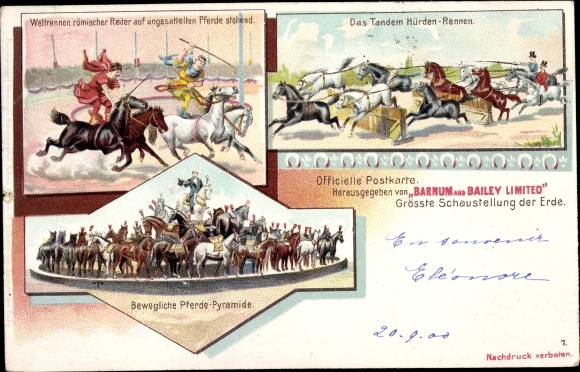 Wettrennen römischer Reiter auf ungesattelten Pferde stehend.
Das Tandem Hürden-Rennen.
Officielle Postkarte.
Herausgegeben von „BARNUM AND BAILEY LIMITED"
Grösste Schaustellung der Erde.
Bewegliche Pferde-Pyramide.
En souvenir
Eléonore
20.9.00
7.
Nachdruck verboten.